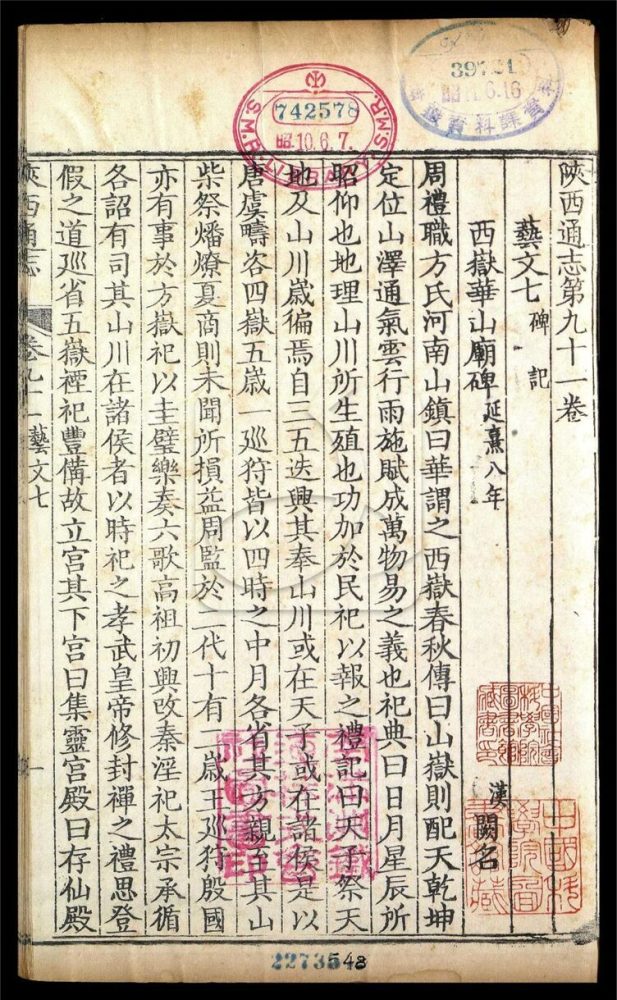 陝西通志第九十一卷
藝文七 碑記
西嶽華山廟碑 延熹八年 漢 闕名
周禮職方氏河南山鎮曰華謂之西嶽春秋傳曰山嶽則配天乾坤
定位山澤通氣雲行雨施賦成萬物易之義也祀典曰日月星辰所
昭仰也地理山川所生殖也功加於民祀以報之禮記曰天子祭天
地及山川歲徧焉自三五迭興其奉山川或在天子或在諸侯是以
唐虞疇咨四嶽五歲一巡狩皆以四時之中月各省其方親至其山
柴祭燔燎夏商則未聞所損益周監於二代十有二歲王巡狩殷國
亦有事於方嶽祀以圭璧樂奏六歌高祖初興改秦淫祀太宗承循
各詔有司其山川在諸侯者以時祀之孝武皇帝修封禪之禮思登
假之道巡省五嶽禋祀豐備故立宮其下宮曰集靈宮殿曰存仙殿
陝西通志 卷九十一 藝文七 一
742578
昭10.6.7.
S.M.R.
6.16
資料課
2273548